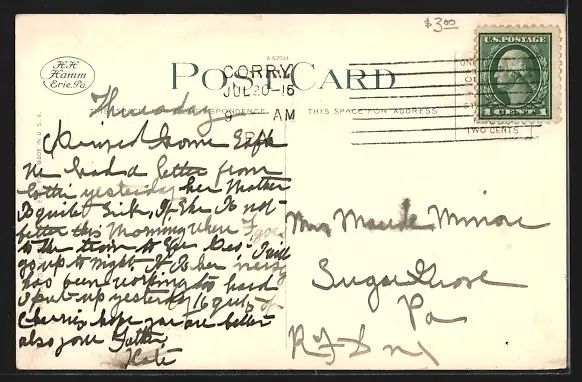 $3.00
H.H.
Hamm
Erie, Pa.
A-52744
POST CARD
CORRY
JUL 20-16
9 AM
PA.
U.S. POSTAGE
1 CENT 1
TWO CENTS
THIS SPACE FOR ADDRESS
MADE IN U.S.A.
Thursday
Arrived home Safe
We had a letter from
Lottie yesterday her Mother
Is quite Sick, If She Is not
better this Morning when I goes
to the train to See Geo; I will
go up to night. It Is her
has been working to hard
I put up yesterday 16 quts of
Cherries, hope you are better
also your Father,
Kate
Mrs Maude Minor
Sugar Grove
Pa
R.F.D no 1